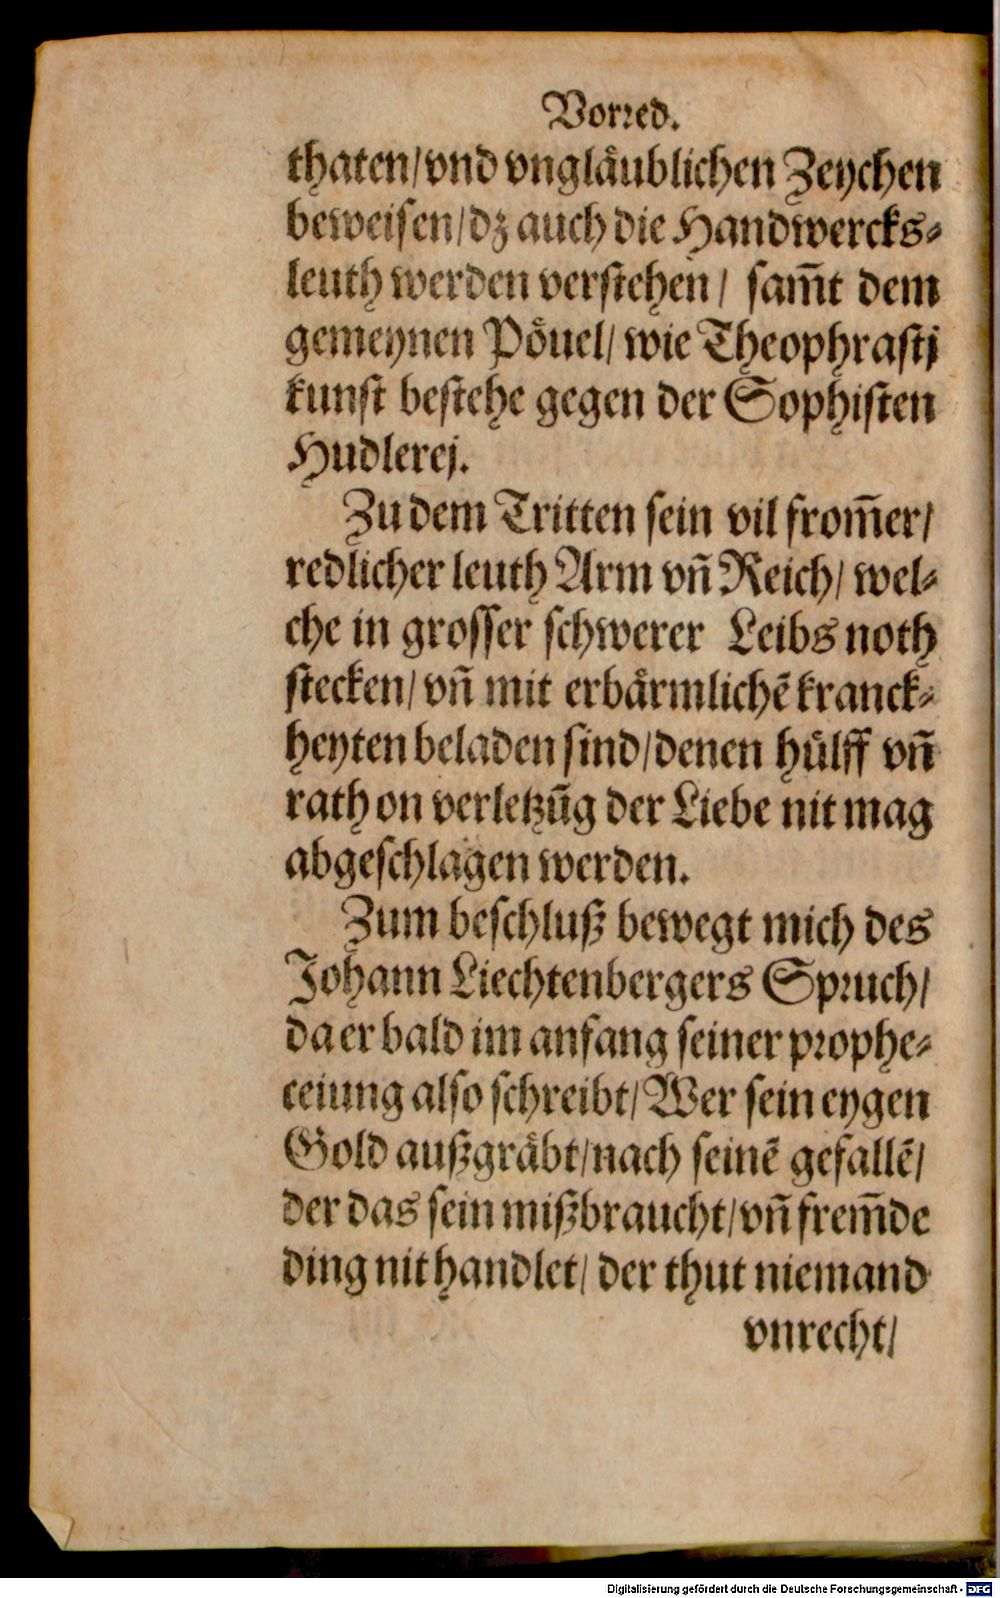 Vorred.
thaten/vnd vngläublichen Zeychen
beweisen/dz auch die Handwercks-
leuth werden verstehen/ sam̃t dem
gemeynen Pöuel/ wie Theophrastj
kunst bestehe gegen der Sophisten
Hudlerej.
Zu dem Tritten sein vil from̃er/
redlicher leuth Arm vñ Reich/ wel-
che in grosser schwerer Leibs noth
stecken/ vñ mit erbärmlichē kranck-
heyten beladen sind/denen hülff vñ
rath on verletzūg der Liebe nit mag
abgeschlagen werden.
Zum beschluß bewegt mich des
Johann Liechtenbergers Spruch/
da er bald im anfang seiner prophe-
ceiung also schreibt/Wer sein eygen
Gold außgräbt/nach seinē gefallē/
der das sein mißbraucht/vñ frem̃de
ding nit handlet/ der thut niemand
vnrecht/
Digitalisierung gefördert durch die Deutsche Forschungsgemeinschaft - DFG